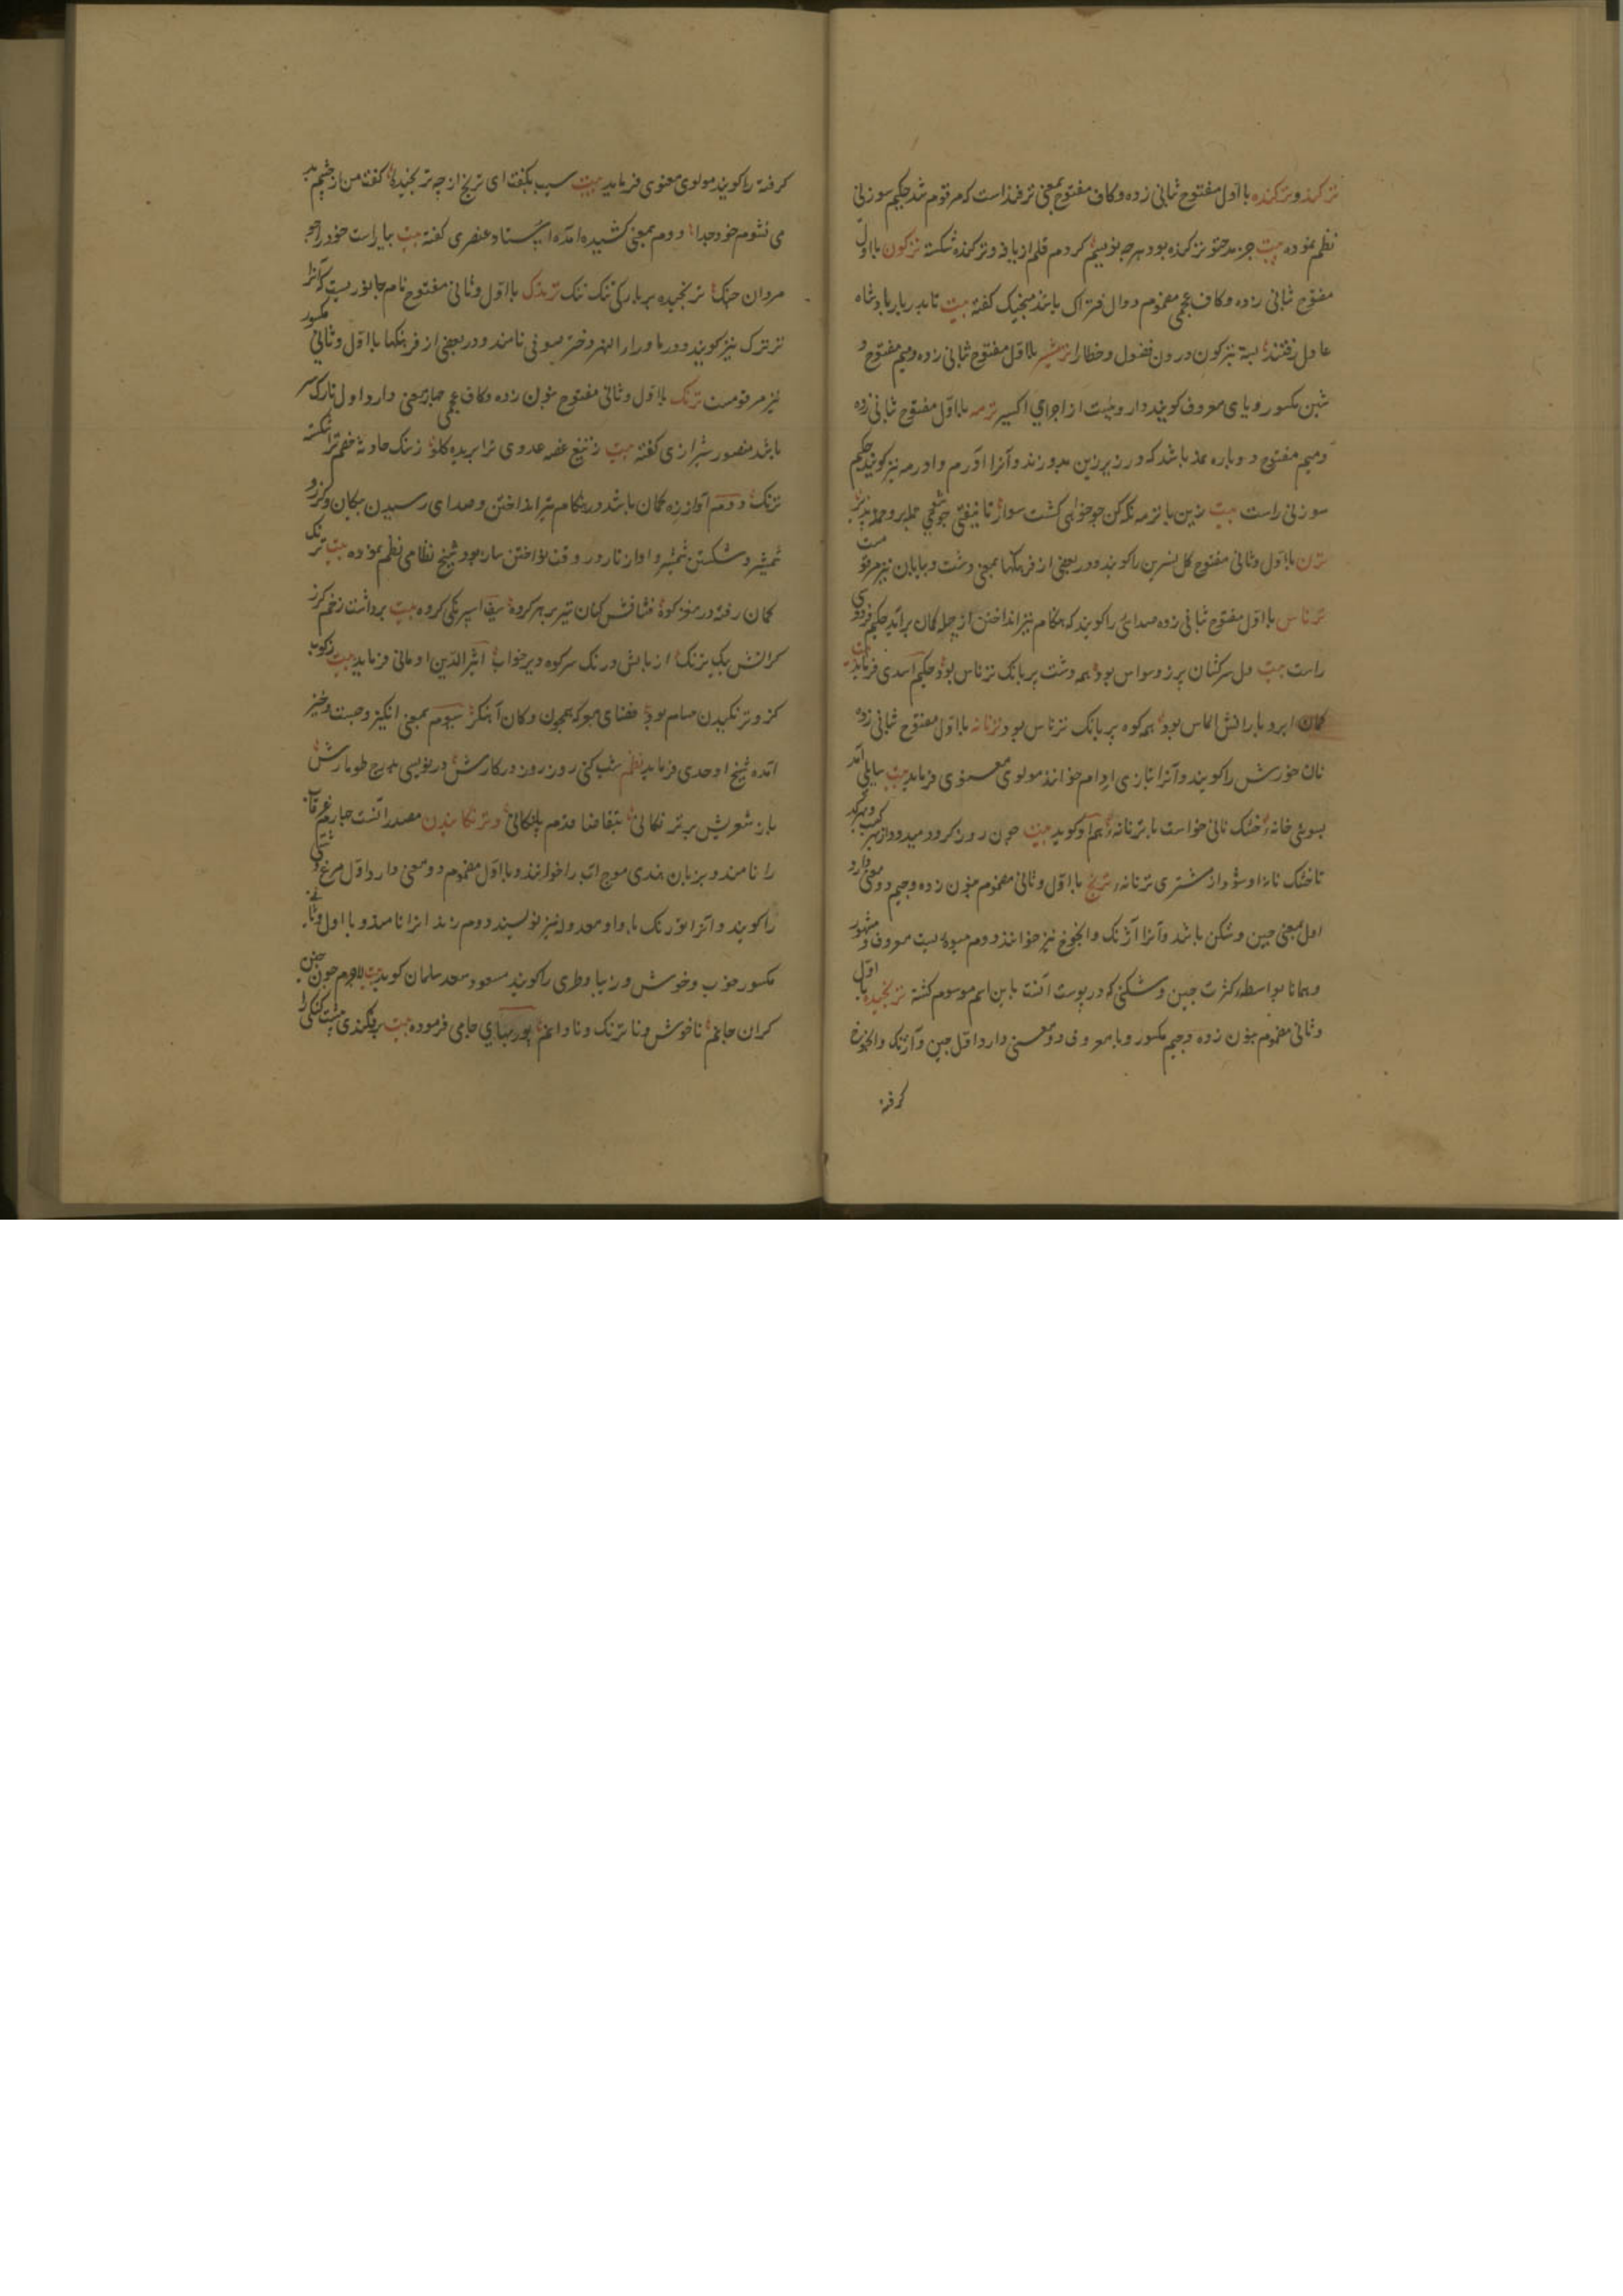 ترکند و ترکنده با اول مفتوح ثبانی زده و کاف مفتوح بمعنی ترفند است که مرقوم شد حکیم سوزنی
نظم نموده بیت جز مدحتو ترکنده بود هرچه نویسم کردم قلم از یافه و ترکنده شکسته ترکون با اول
مفتوح ثبانی زده و کاف عجمی مضموم دوال فتراک باشد منجیک کفته بیت تا بدربار پادشاه
عادل رفتند بسته بترکون درون فضول و خطا را ترمشیر با اول مفتوح ثبانی زده و میم مفتوح و
شین مکسور و یای معروف کویند داروییست از اجزای اکسیر ترمه با اول مفتوح ثبانی زده
و میم مفتوح دو پاره نمد باشد که در زیر زین بدوزند و آنرا آدرم و ادرمه نیز کویند حکیم
سوزنی راست بیت زین با ترمه نکه کن چو خواهی کشت سوار تا نیفتی
ترن با اول و ثانی مفتوح کل نسرین را کویند و در بعضی از فرهنکها بمعنی دشت و بیابان نیز مرقومست
ترناس با اول مفتوح ثبانی زده صدایی را کویند که هنکام تیر انداختن از چله کمان برآید حکیم فردوسی
راست بیت دل سرکشان پر ز وسواس بود همه دشت پر بانک ترناس بود حکیم اسدی فرماید بیت
کمان ابرو بارانش الماس بود همه کوه پر بانک ترناس بود ترنانه با اول مفتوح ثبانی زده
نان خورش را کویند و آنرا بتازی ادام خوانند مولوی معنوی فرماید بیت سایلی آمد
بسوی خانه خشک نانی خواست با ترنانه هم او کوید بیت چون روز کردد میدود از بهر کسب و بهر کد
تا خشک نانه او شود از مشتری ترنانه ترنج با اول و ثانی مضموم بنون زده و جیم دو معنی دارد
اول بمعنی چین و شکن باشد و آنرا آژنک و انجوغ نیز خوانند دوم میوه ایست معروف و مشهور
و همانا بواسطه کثرت چین و شکنی که در پوست آنست باین اسم موسوم کشته ترنجیده با اول
و ثانی مضموم بنون زده و جیم مکسور و یای معروف دو معنی دارد اول چین و آژنک و انجوغ
کرفته
کرفته را کویند مولوی معنوی فرماید بیت سیب بکفت ای ترنج از چه ترنجیده کفت من از چشم بد
می نشوم خود جدا دوم بمعنی کشیده آمده استاد عنصری کفته بیت بیاراست خود را چو
مردان جنک ترنجیده بر بارکی تنک تنک ترندک با اول و ثانی مفتوح نام جانوریست که آنرا
ترترک نیز کویند و در ماوراءالنهر دختر صوفی نامند و در بعضی از فرهنکها با اول و ثانی مکسور
نیز مرقومست ترنک با اول و ثانی مفتوح بنون زده و کاف عجمی چهار معنی دارد اول تارک سر
باشد منصور شیرازی کفته بیت ز تیغ غصه عدوی ترا بریده کلو ز سنک حادثه خصم ترا شکسته
ترنک دوم آواز زه کمان باشد در هنکام تیر انداختن و صدای رسیدن پیکان و کرز و
شمشیر و شکستن شمشیر و آواز تار در وقت نواختن ساز بود شیخ نظامی نظم نموده بیت ترنک
کمان رفته در مغز کوه فشافش کنان تیر بر هر کروه سیف اسپرنکی کروه بیت برداشت زخم کرز
کرانش بیک ترنک از بالش درنک سر کوه دیر خواب اثیر الدین اومانی فرماید بیت زکوب
کرز و ترنکیدن حسام بود فضای معرکه همچون دکان آهنکر سیوم بمعنی انکیز و جست و خیز
آمده شیخ اوحدی فرماید نظم شب کنی روز روز در کارش در نویسی بدرج طومارش
باز شویش بر ترنکانی بتقاضا قدم بلنکانی و ترنکانیدن مصدر آنست چهارم
را نامند و بزبان هندی موج آب را خوانند و با اول مضموم دو معنی دارد اول مرغ دشتی
را کویند و آنرا تورنک با واو معدوله نیز نویسند دوم زندانرا نامند و با اول و ثانی
مکسور خوب و خوش و زیبا و طری را کویند مسعود سعد سلمان کوید بیت لاجرم چون چنین
کران جانم ناخوش و ناترنک و نادانم پوربهای جامی فرموده بیت برفکندی